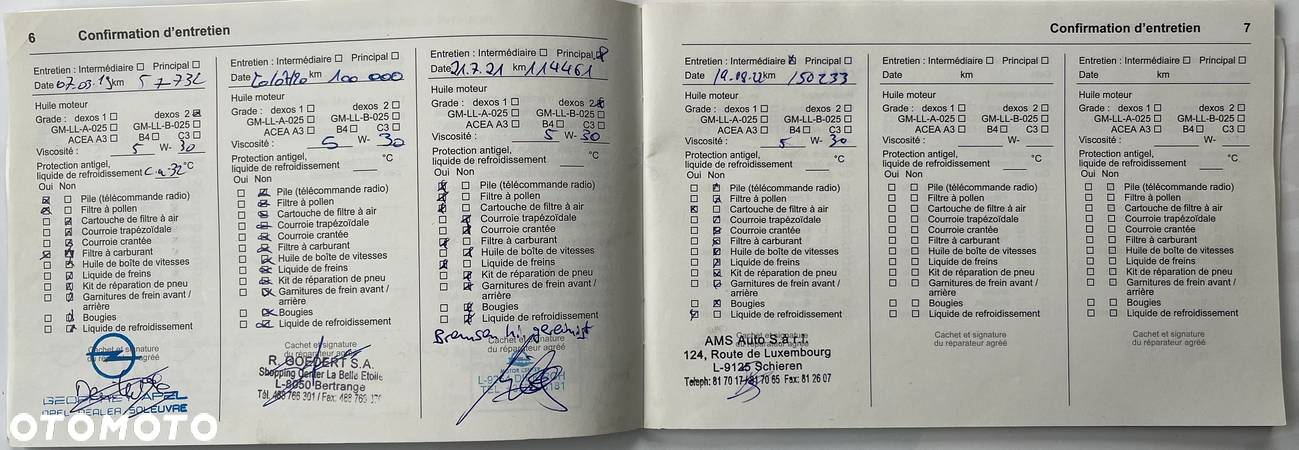 6 Confirmation d'entretien
Entretien : Intermédiaire Principal
Date 07.03.19 km 57732
Huile moteur
Grade : dexos 1 dexos 2
GM-LL-A-025 GM-LL-B-025
ACEA A3 B4 C3
Viscosité : 5 W- 30
Protection antigel,
liquide de refroidissement °C
Oui Non
Pile (télécommande radio)
Filtre à pollen
Cartouche de filtre à air
Courroie trapézoïdale
Courroie crantée
Filtre à carburant
Huile de boîte de vitesses
Liquide de freins
Kit de réparation de pneu
Garnitures de frein avant /
arrière
Bougies
Liquide de refroidissement
Cachet et signature
du réparateur agréé
OPEL DEALER SOLEUVRE
Entretien : Intermédiaire Principal
Date km 100 000
Huile moteur
Grade : dexos 1 dexos 2
GM-LL-A-025 GM-LL-B-025
ACEA A3 B4 C3
Viscosité : 5 W- 30
Protection antigel,
liquide de refroidissement °C
Oui Non
Pile (télécommande radio)
Filtre à pollen
Cartouche de filtre à air
Courroie trapézoïdale
Courroie crantée
Filtre à carburant
Huile de boîte de vitesses
Liquide de freins
Kit de réparation de pneu
Garnitures de frein avant /
arrière
Bougies
Liquide de refroidissement
Cachet et signature
du réparateur agréé
R. GOEDERT S.A.
Shopping Center La Belle Etoile
L-8050 Bertrange
Tél. 488 766 301 / Fax: 488 766
Entretien : Intermédiaire Principal
Date 21.7.21 km 114461
Huile moteur
Grade : dexos 1 dexos 2
GM-LL-A-025 GM-LL-B-025
ACEA A3 B4 C3
Viscosité : 5 W- 30
Protection antigel,
liquide de refroidissement °C
Oui Non
Pile (télécommande radio)
Filtre à pollen
Cartouche de filtre à air
Courroie trapézoïdale
Courroie crantée
Filtre à carburant
Huile de boîte de vitesses
Liquide de freins
Kit de réparation de pneu
Garnitures de frein avant /
arrière
Bougies
Liquide de refroidissement
Bremsen hi. gereinigt
Cachet et signature
du réparateur agréé
MOTOR CENTER
Confirmation d'entretien 7
Entretien : Intermédiaire Principal
Date 19.08.22 km 150233
Huile moteur
Grade : dexos 1 dexos 2
GM-LL-A-025 GM-LL-B-025
ACEA A3 B4 C3
Viscosité : 5 W- 30
Protection antigel,
liquide de refroidissement °C
Oui Non
Pile (télécommande radio)
Filtre à pollen
Cartouche de filtre à air
Courroie trapézoïdale
Courroie crantée
Filtre à carburant
Huile de boîte de vitesses
Liquide de freins
Kit de réparation de pneu
Garnitures de frein avant /
arrière
Bougies
Liquide de refroidissement
Cachet et signature
du réparateur agréé
AMS Auto S.à r.l.
124, Route de Luxembourg
L-9125 Schieren
Teleph: 81 70 17 / 81 70 65 Fax: 81 26 07
Entretien : Intermédiaire Principal
Date km
Huile moteur
Grade : dexos 1 dexos 2
GM-LL-A-025 GM-LL-B-025
ACEA A3 B4 C3
Viscosité : W-
Protection antigel,
liquide de refroidissement °C
Oui Non
Pile (télécommande radio)
Filtre à pollen
Cartouche de filtre à air
Courroie trapézoïdale
Courroie crantée
Filtre à carburant
Huile de boîte de vitesses
Liquide de freins
Kit de réparation de pneu
Garnitures de frein avant /
arrière
Bougies
Liquide de refroidissement
Cachet et signature
du réparateur agréé
Entretien : Intermédiaire Principal
Date km
Huile moteur
Grade : dexos 1 dexos 2
GM-LL-A-025 GM-LL-B-025
ACEA A3 B4 C3
Viscosité : W-
Protection antigel,
liquide de refroidissement °C
Oui Non
Pile (télécommande radio)
Filtre à pollen
Cartouche de filtre à air
Courroie trapézoïdale
Courroie crantée
Filtre à carburant
Huile de boîte de vitesses
Liquide de freins
Kit de réparation de pneu
Garnitures de frein avant /
arrière
Bougies
Liquide de refroidissement
Cachet et signature
du réparateur agréé
OTOMOTO